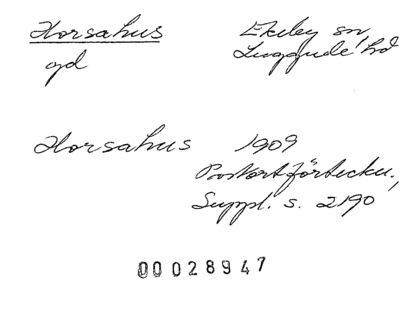 Horsahus Ekeby sn,
gd Luggude hd
Horsahus 1909
Postortförteckn.,
Suppl. s. 2190
00028947